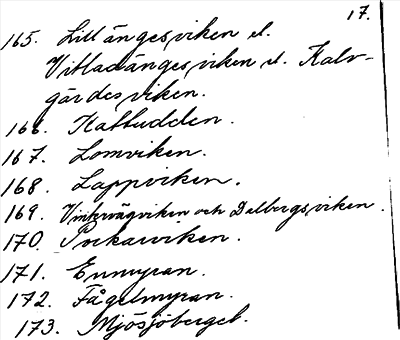 17.
165. Lillängesviken el.
Vitladängesviken el. Kalv-
gärdesviken.
166. Kattudden.
167. Lomviken.
168. Lappviken.
169. Vintervägviken och Delbergsviken.
170. Pockaviken.
171. Enmyran.
172. Fågelmyran.
173. Mjösjöberget.